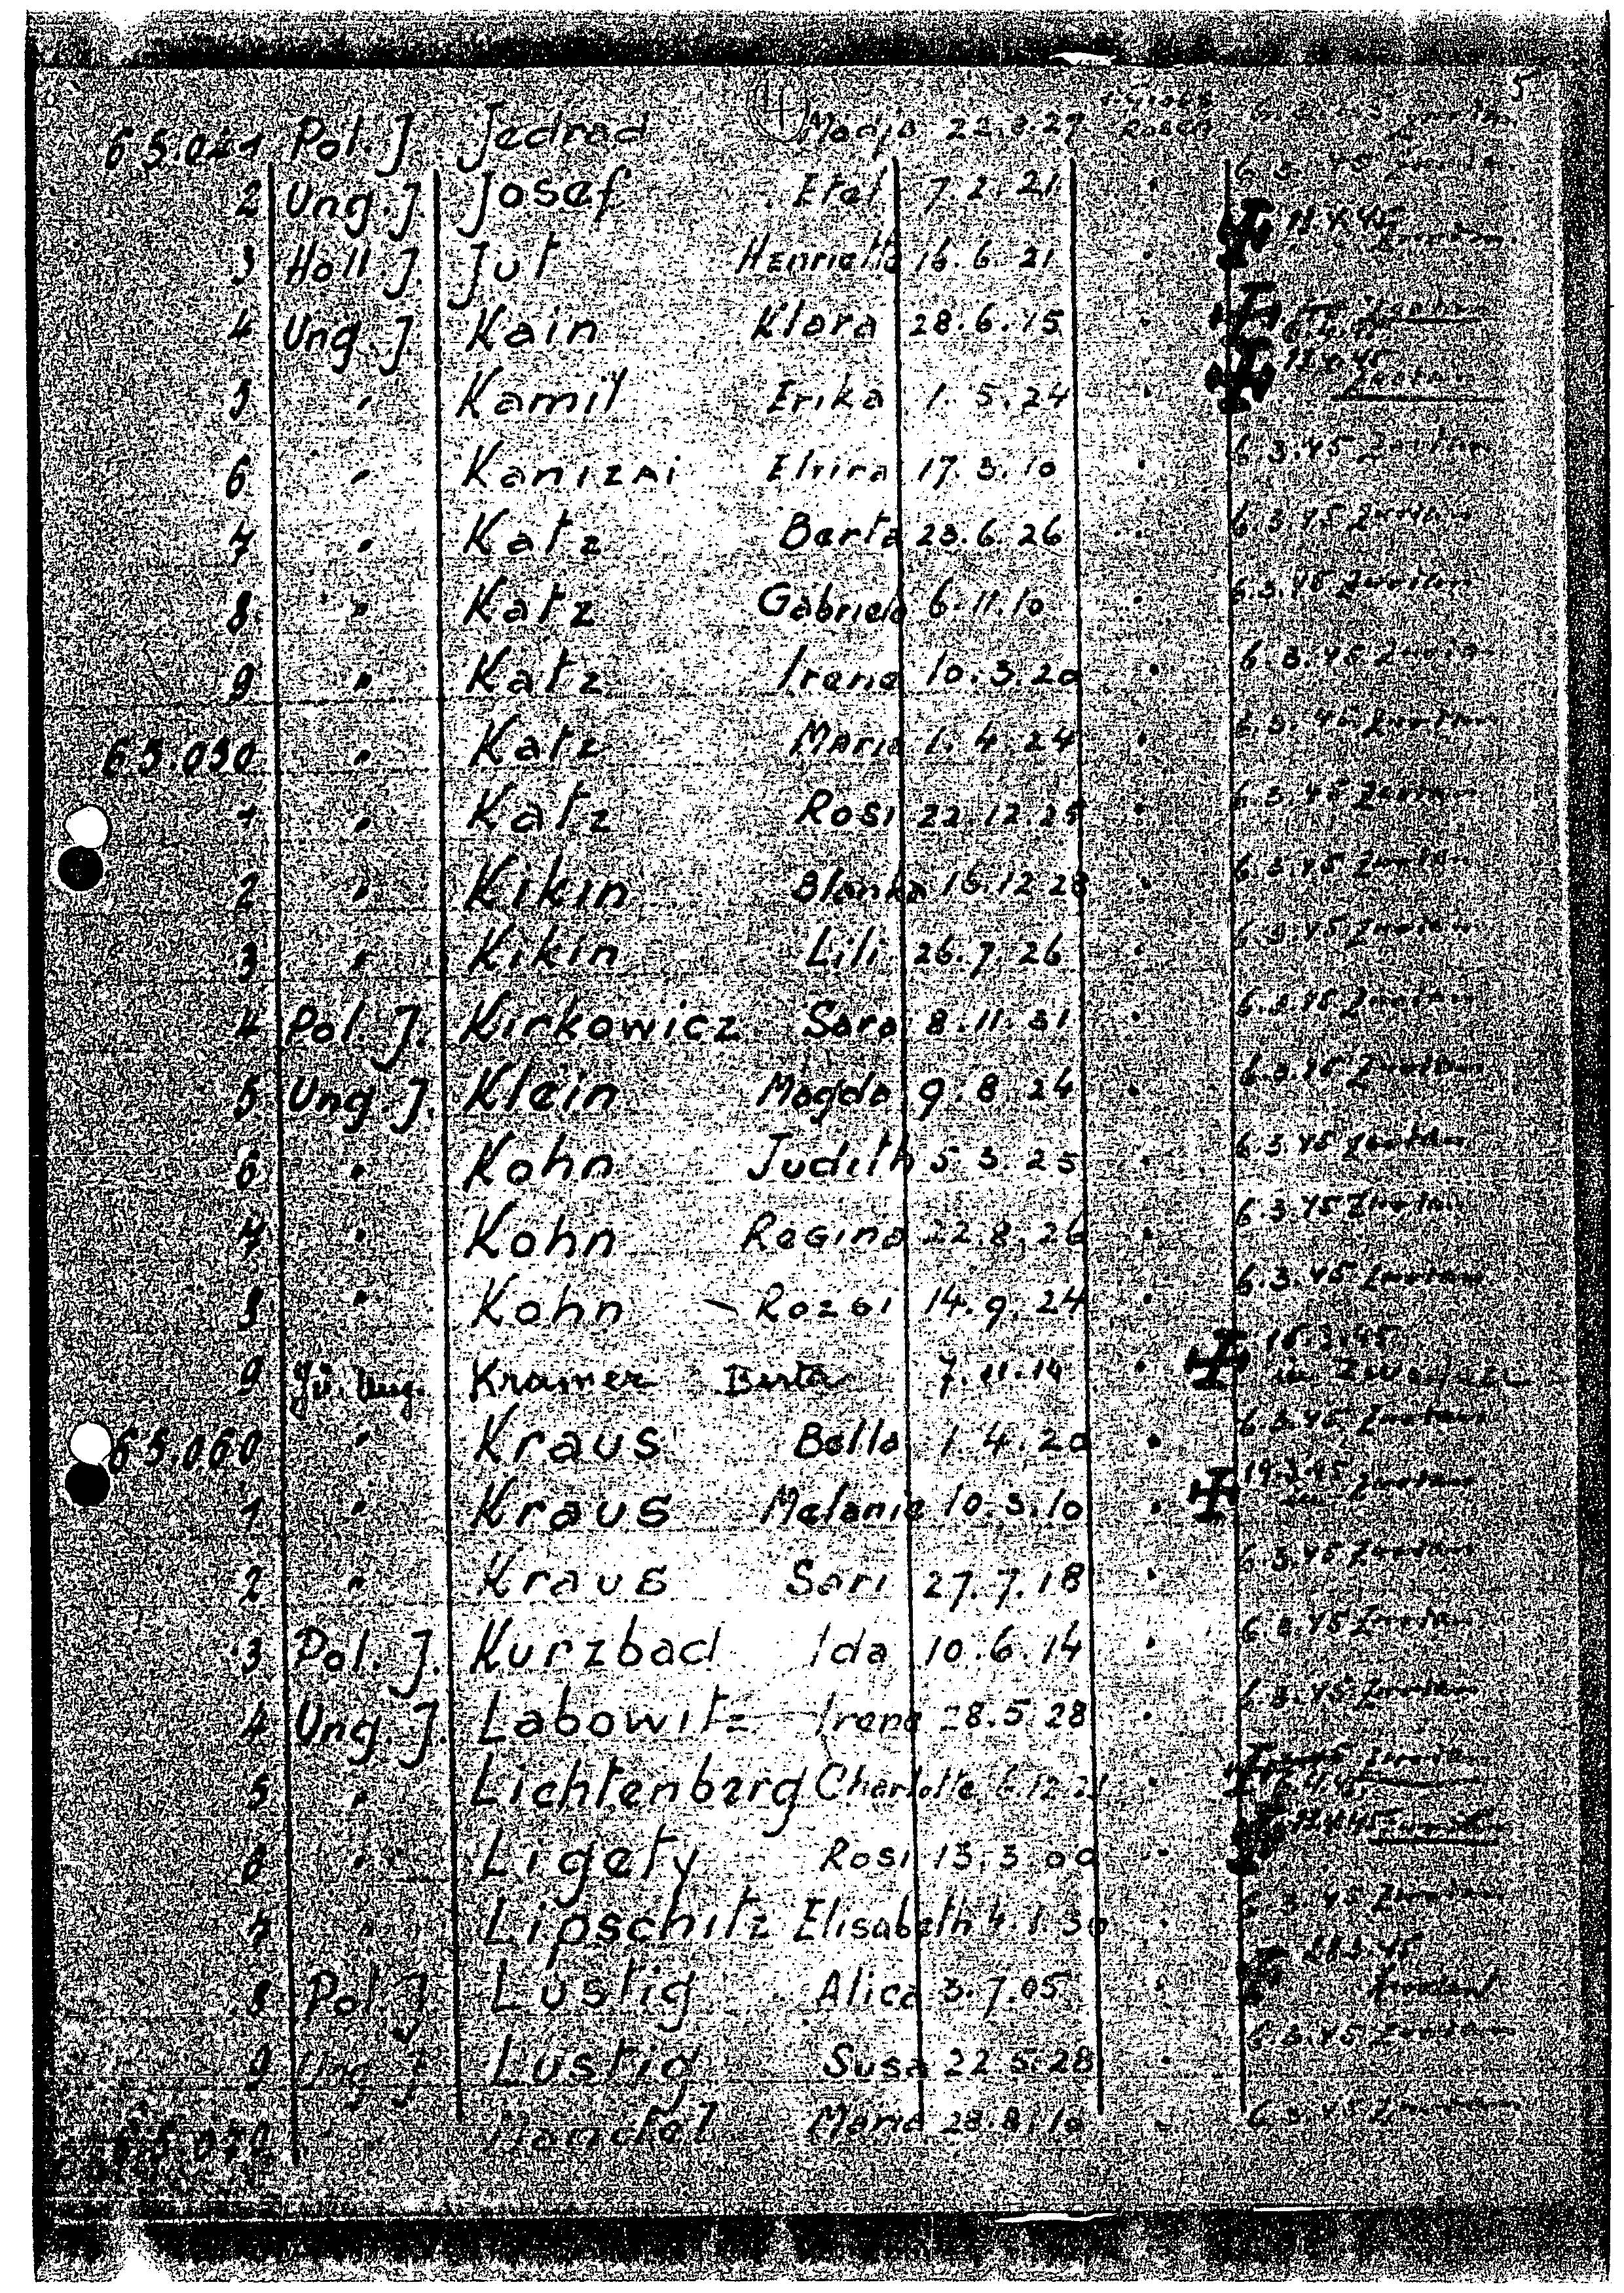 4 5
65.041 Pol. J. Jedrad 27
2 Ung. J. Josef Etel 7.2.21 6.3.45
3 Holl. J. Jut Henriette 16.6.21
4 Ung. J. Kain Klara 28.6.15
5 " Kamil Erika 1.5.24
6 " Kaniz Ai Elvira 17.3.10 6.3.45 Zwotau
7 " Katz Berta 23.6.26 6.3.45 Zwotau
8 " Katz Gabriela 6.11.10 6.3.45 Zwotau
9 " Katz Irene 10.3.20 6.3.45 Zwotau
65.050 " Katz Maria 1.4.24 6.3.45 Zwotau
1 " Katz Rosi 22.12.25 6.3.45 Zwotau
2 " Kikin Blanka 16.12.28 6.3.45 Zwotau
3 " Kikin Lili 26.7.26 6.3.45 Zwotau
4 Pol. J. Kirkowicz Sara 8.11.31 6.3.45 Zwotau
5 Ung. J. Klein Magda 9.8.24 6.3.45 Zwotau
6 " Kohn Judith 5.3.25 6.3.45 Zwotau
7 " Kohn Regina 22.8.26 6.3.45 Zwotau
8 " Kohn Rozsi 14.9.24 6.3.45 Zwotau
9 Jü. Ung. Kramer Berta 7.11.14 16.3.45
65.060 " Kraus Bella 1.4.20 6.3.45 Zwotau
1 " Kraus Melanie 10.3.10 19.3.45 in Zwotau
2 " Kraus Sari 27.7.18 6.3.45 Zwotau
3 Pol. J. Kurzbad Ida 10.6.14 6.3.45 Zwotau
4 Ung. J. Labowitz Irene 28.5.28 6.3.45 Zwotau
5 " Lichtenberg Charlotte 6.12.21
6 " Ligety Rosi 13.3.00
7 " Lipschitz Elisabeth 4.1.30 6.3.45 Zwotau
8 Pol. J. Lustig Alica 3.7.05
9 Ung. J. Lustig Susa 22.5.28 6.3.45 Zwotau
65.070 Mandel Maria 28.8.10 6.3.45 Zwotau